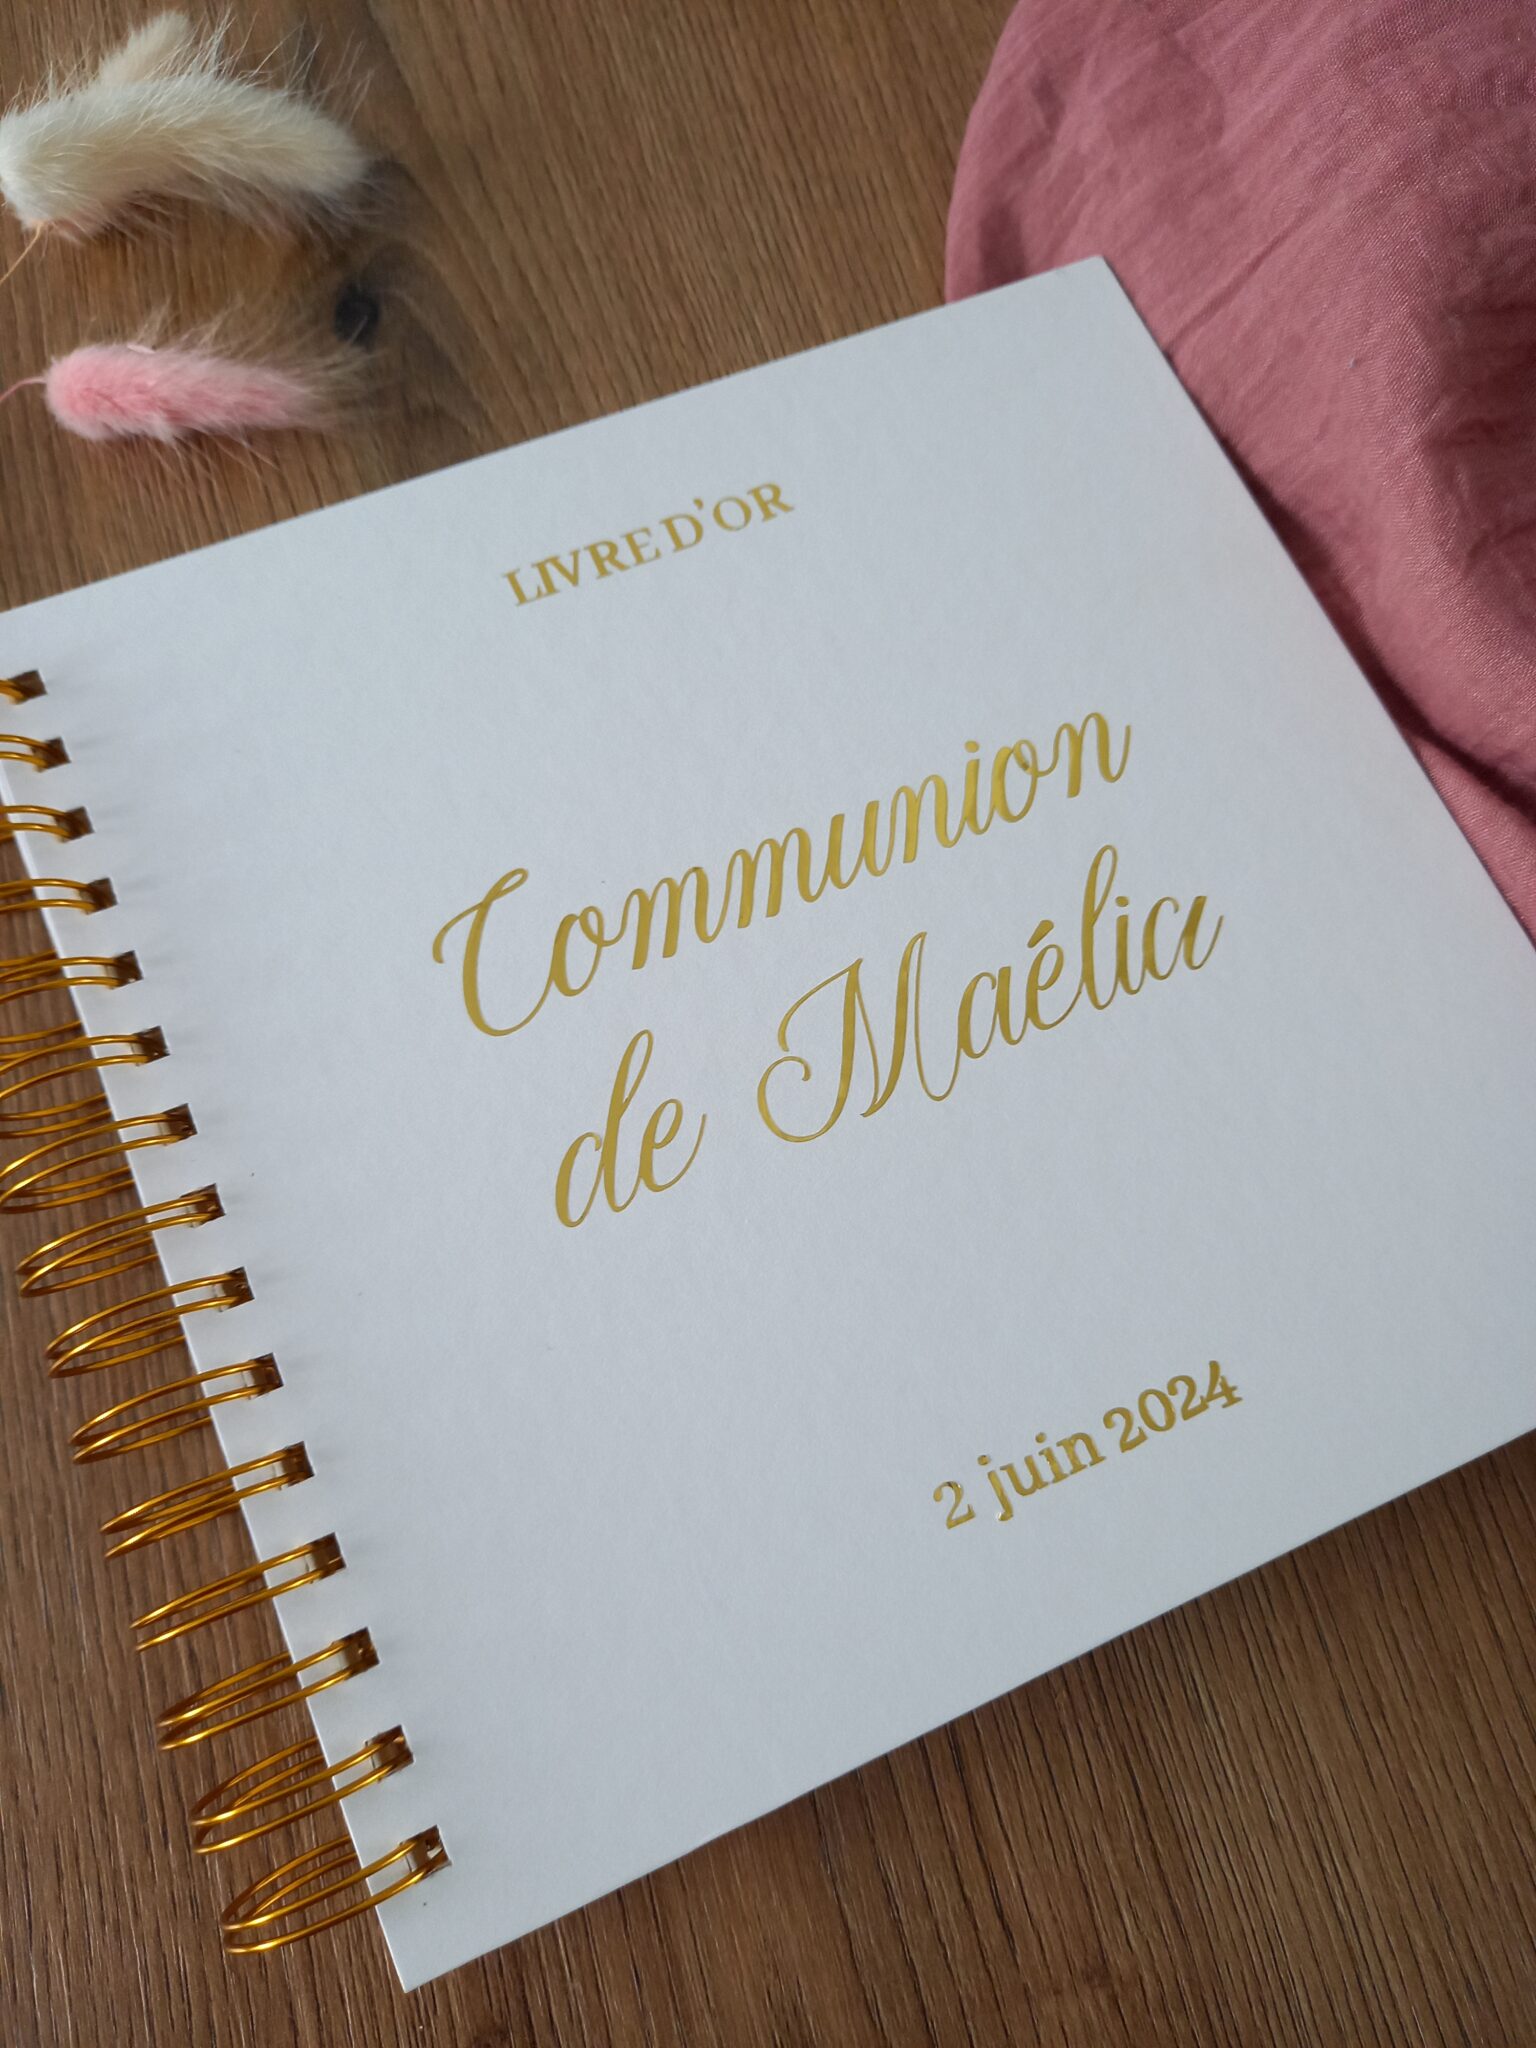 LIVRE D'OR
Communion
de Maélia
2 juin 2024